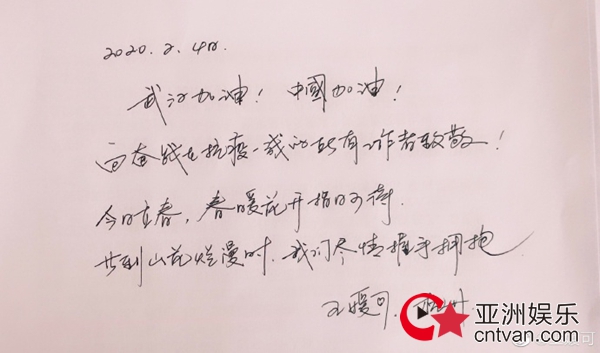 2020.2.4日.
武汉加油！中國加油！
向奋战在抗疫一线的所有工作者致敬！
今日立春，春暖花开指日可待.
共到山花烂漫时.我们尽情握手拥抱
王媛可
亚洲娱乐
cntvan.com
可